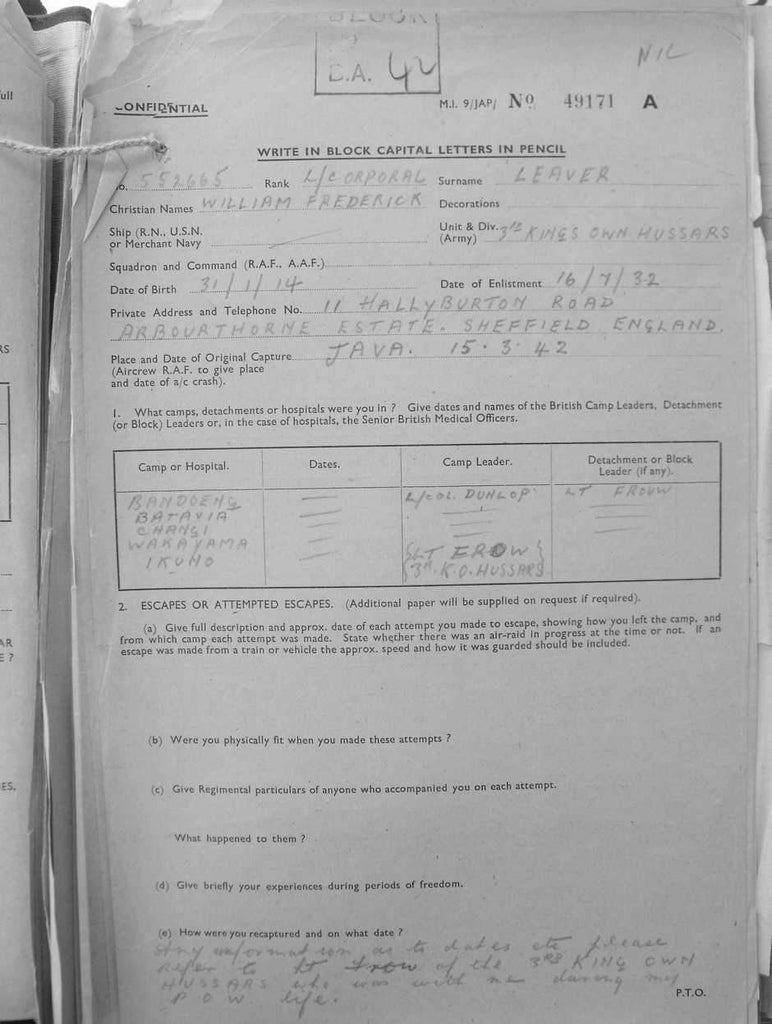 BLOCK
D.A. 42
NIL
CONFIDENTIAL
M.I. 9/JAP/ No 49171 A
WRITE IN BLOCK CAPITAL LETTERS IN PENCIL
No. 552665 Rank L/CORPORAL Surname LEAVER
Christian Names WILLIAM FREDERICK Decorations
Ship (R.N., U.S.N. or Merchant Navy
Unit & Div. (Army) 3rd KINGS OWN HUSSARS
Squadron and Command (R.A.F., A.A.F.)
Date of Birth 31/1/14 Date of Enlistment 16/7/32
Private Address and Telephone No. 11 HALLYBURTON ROAD
ARBOURTHORNE ESTATE. SHEFFIELD ENGLAND.
Place and Date of Original Capture JAVA. 15.3.42
(Aircrew R.A.F. to give place
and date of a/c crash).
1. What camps, detachments or hospitals were you in ? Give dates and names of the British Camp Leaders, Detachment
(or Block) Leaders or, in the case of hospitals, the Senior British Medical Officers.
Camp or Hospital. Dates. Camp Leader. Detachment or Block Leader (if any).
BANDOENG L/COL. DUNLOP LT FROUW
BATAVIA
CHANGI
WAKAYAMA LT FROW
IKUNO 3rd K.O. HUSSARS
2. ESCAPES OR ATTEMPTED ESCAPES. (Additional paper will be supplied on request if required).
(a) Give full description and approx. date of each attempt you made to escape, showing how you left the camp, and
from which camp each attempt was made. State whether there was an air-raid in progress at the time or not. If an
escape was made from a train or vehicle the approx. speed and how it was guarded should be included.
(b) Were you physically fit when you made these attempts ?
(c) Give Regimental particulars of anyone who accompanied you on each attempt.
What happened to them ?
(d) Give briefly your experiences during periods of freedom.
(e) How were you recaptured and on what date ?
Any information as to dates etc please
refer to Lt Frow of the 3RD KING OWN
HUSSARS who was with me during my
P O W life.
P.T.O.